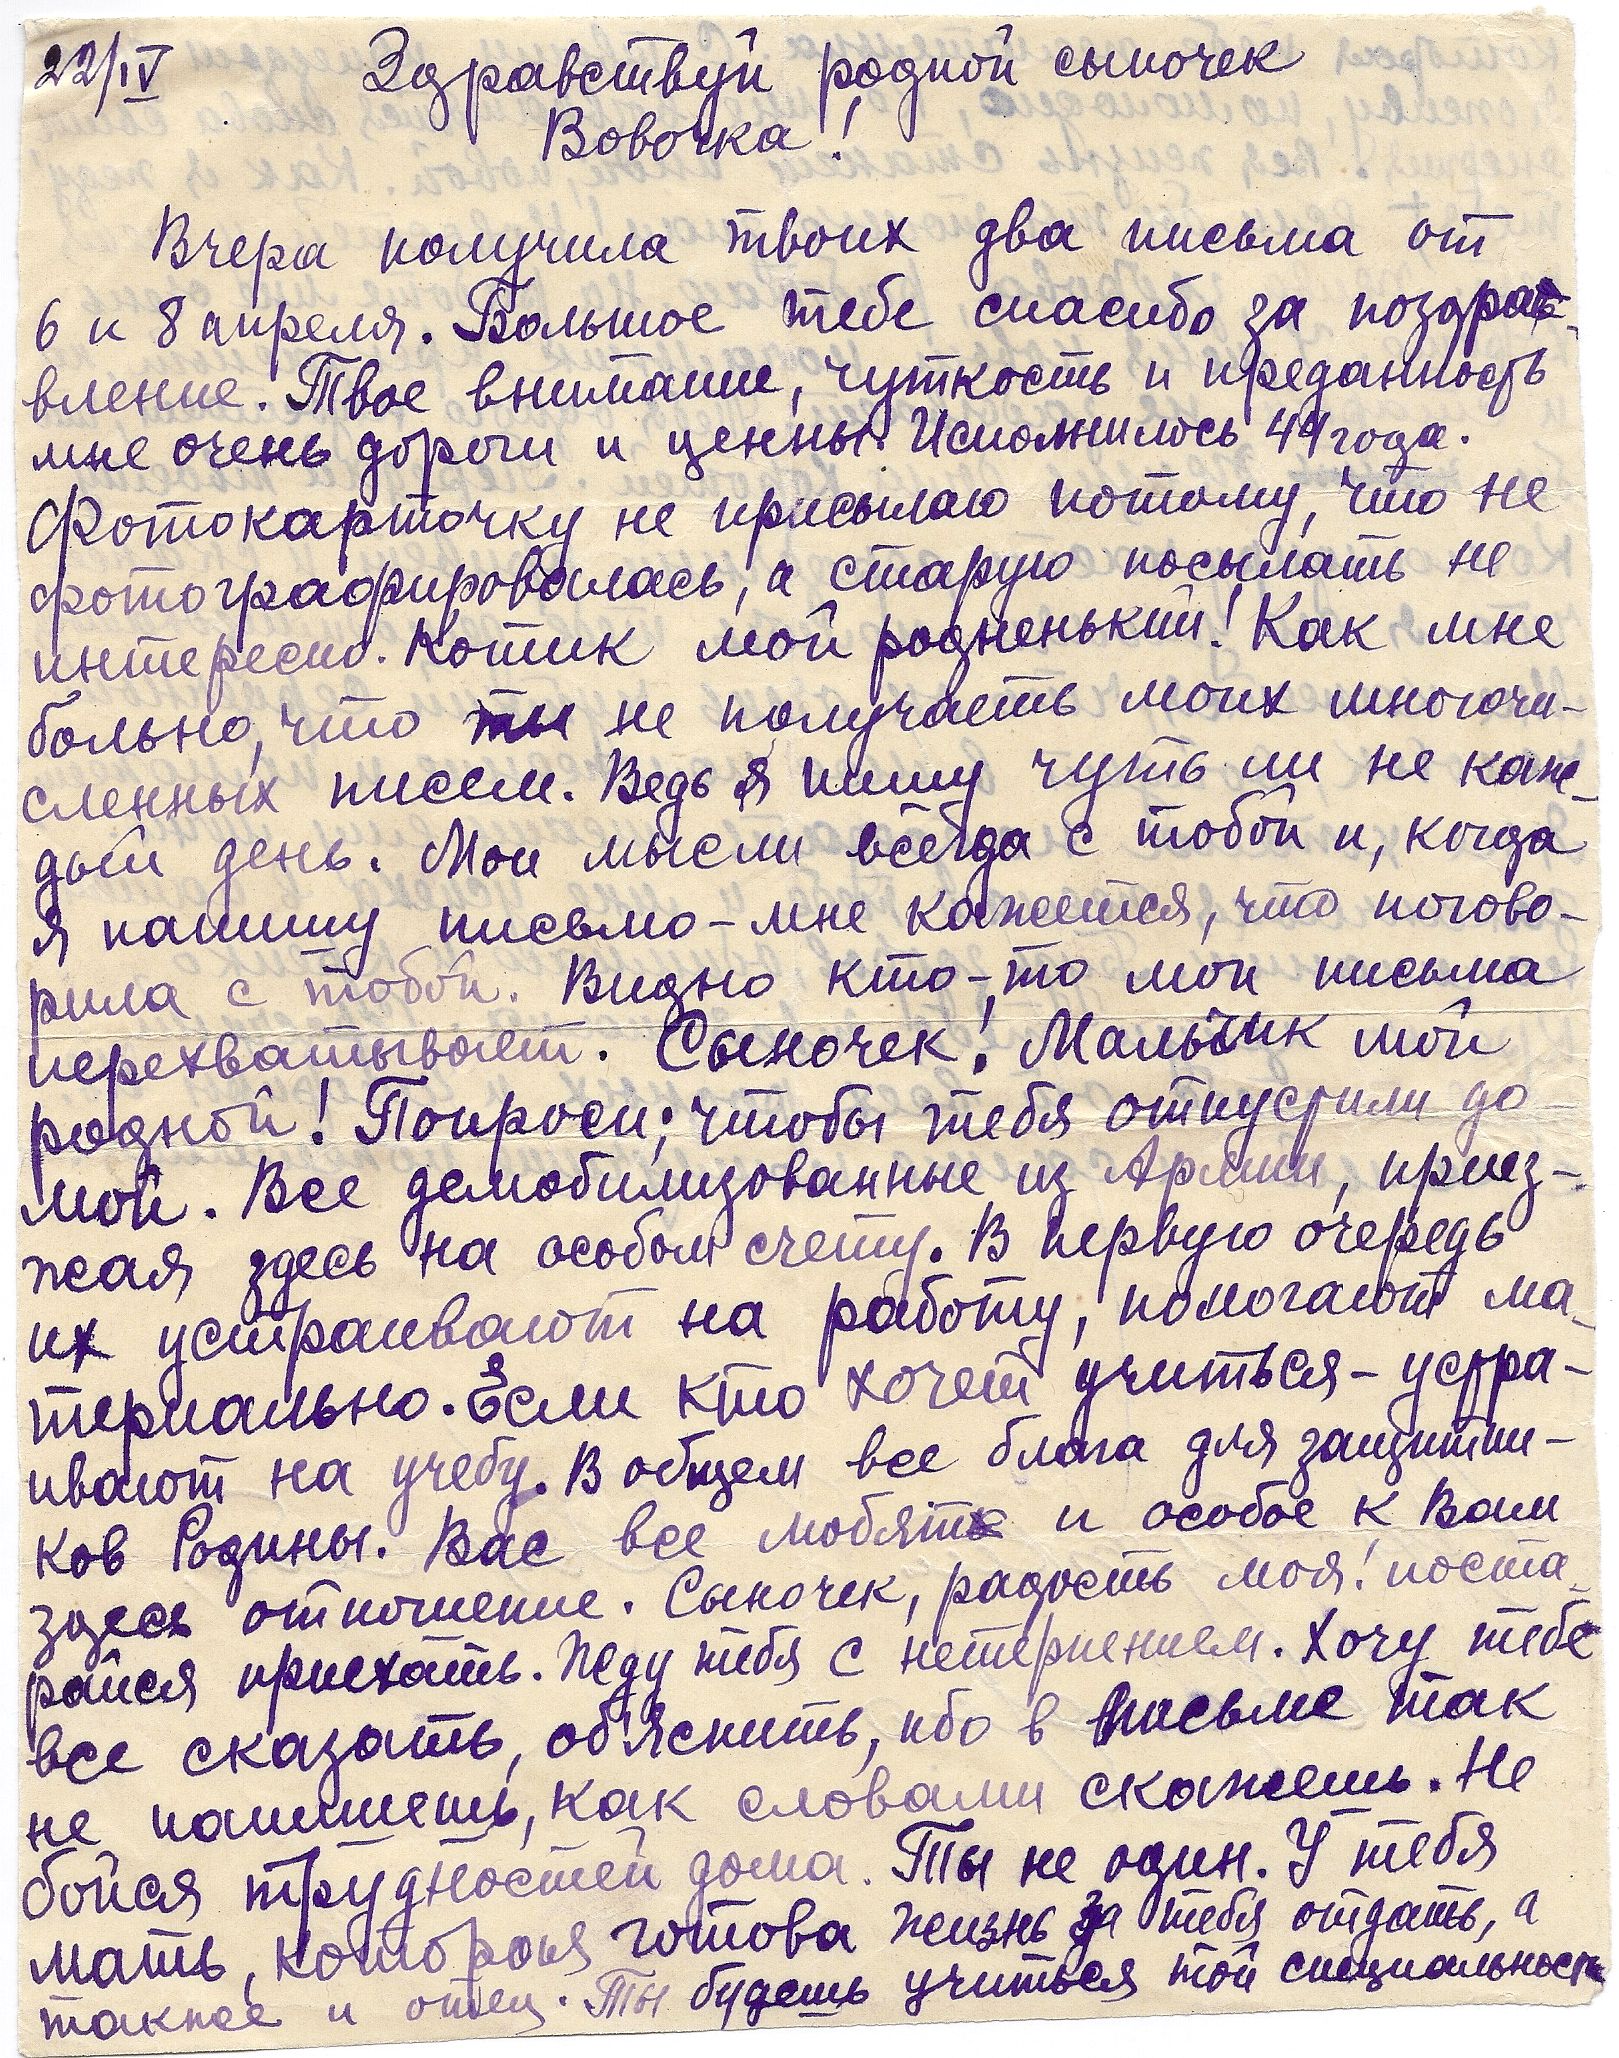 22/IV Здравствуй родной сыночек
Вовочка!
Вчера получила твоих два письма от
6 и 8 апреля. Большое тебе спасибо за поздрав-
вление. Твое внимание, чуткость и преданность
мне очень дороги и ценны. Исполнилось 44 года.
Фотокарточку не присылаю потому, что не
фотографировалась, а старую посылать не
интересно. Котик мой родненький! Как мне
больно, что ты не получаешь моих многочи-
сленных писем. Ведь я пишу чуть ли не каж-
дый день. Мои мысли всегда с тобой и, когда
я напишу письмо - мне кажется, что погово-
рила с тобой. Видно кто-то мои письма
перехватывает. Сыночек! Мальчик мой
родной! Попроси, чтобы тебя отпустили до-
мой. Все демобилизованные из Армии, приез-
жая здесь на особом счету. В первую очередь
их устраивают на работу, помогают ма-
териально. Если кто хочет учиться - устра-
ивают на учебу. В общем все блага для защитни-
ков Родины. Вас все любят и особое к Вам
здесь отношение. Сыночек, радость моя! поста-
райся приехать. Жду тебя с нетерпением. Хочу тебе
все сказать, об'яснить, ибо в письме так
не напишешь, как словами скажешь. Не
бойся трудностей дома. Ты не один. У тебя
мать, которая готова жизнь за тебя отдать, а
также и отец. Ты будешь учиться той специальности